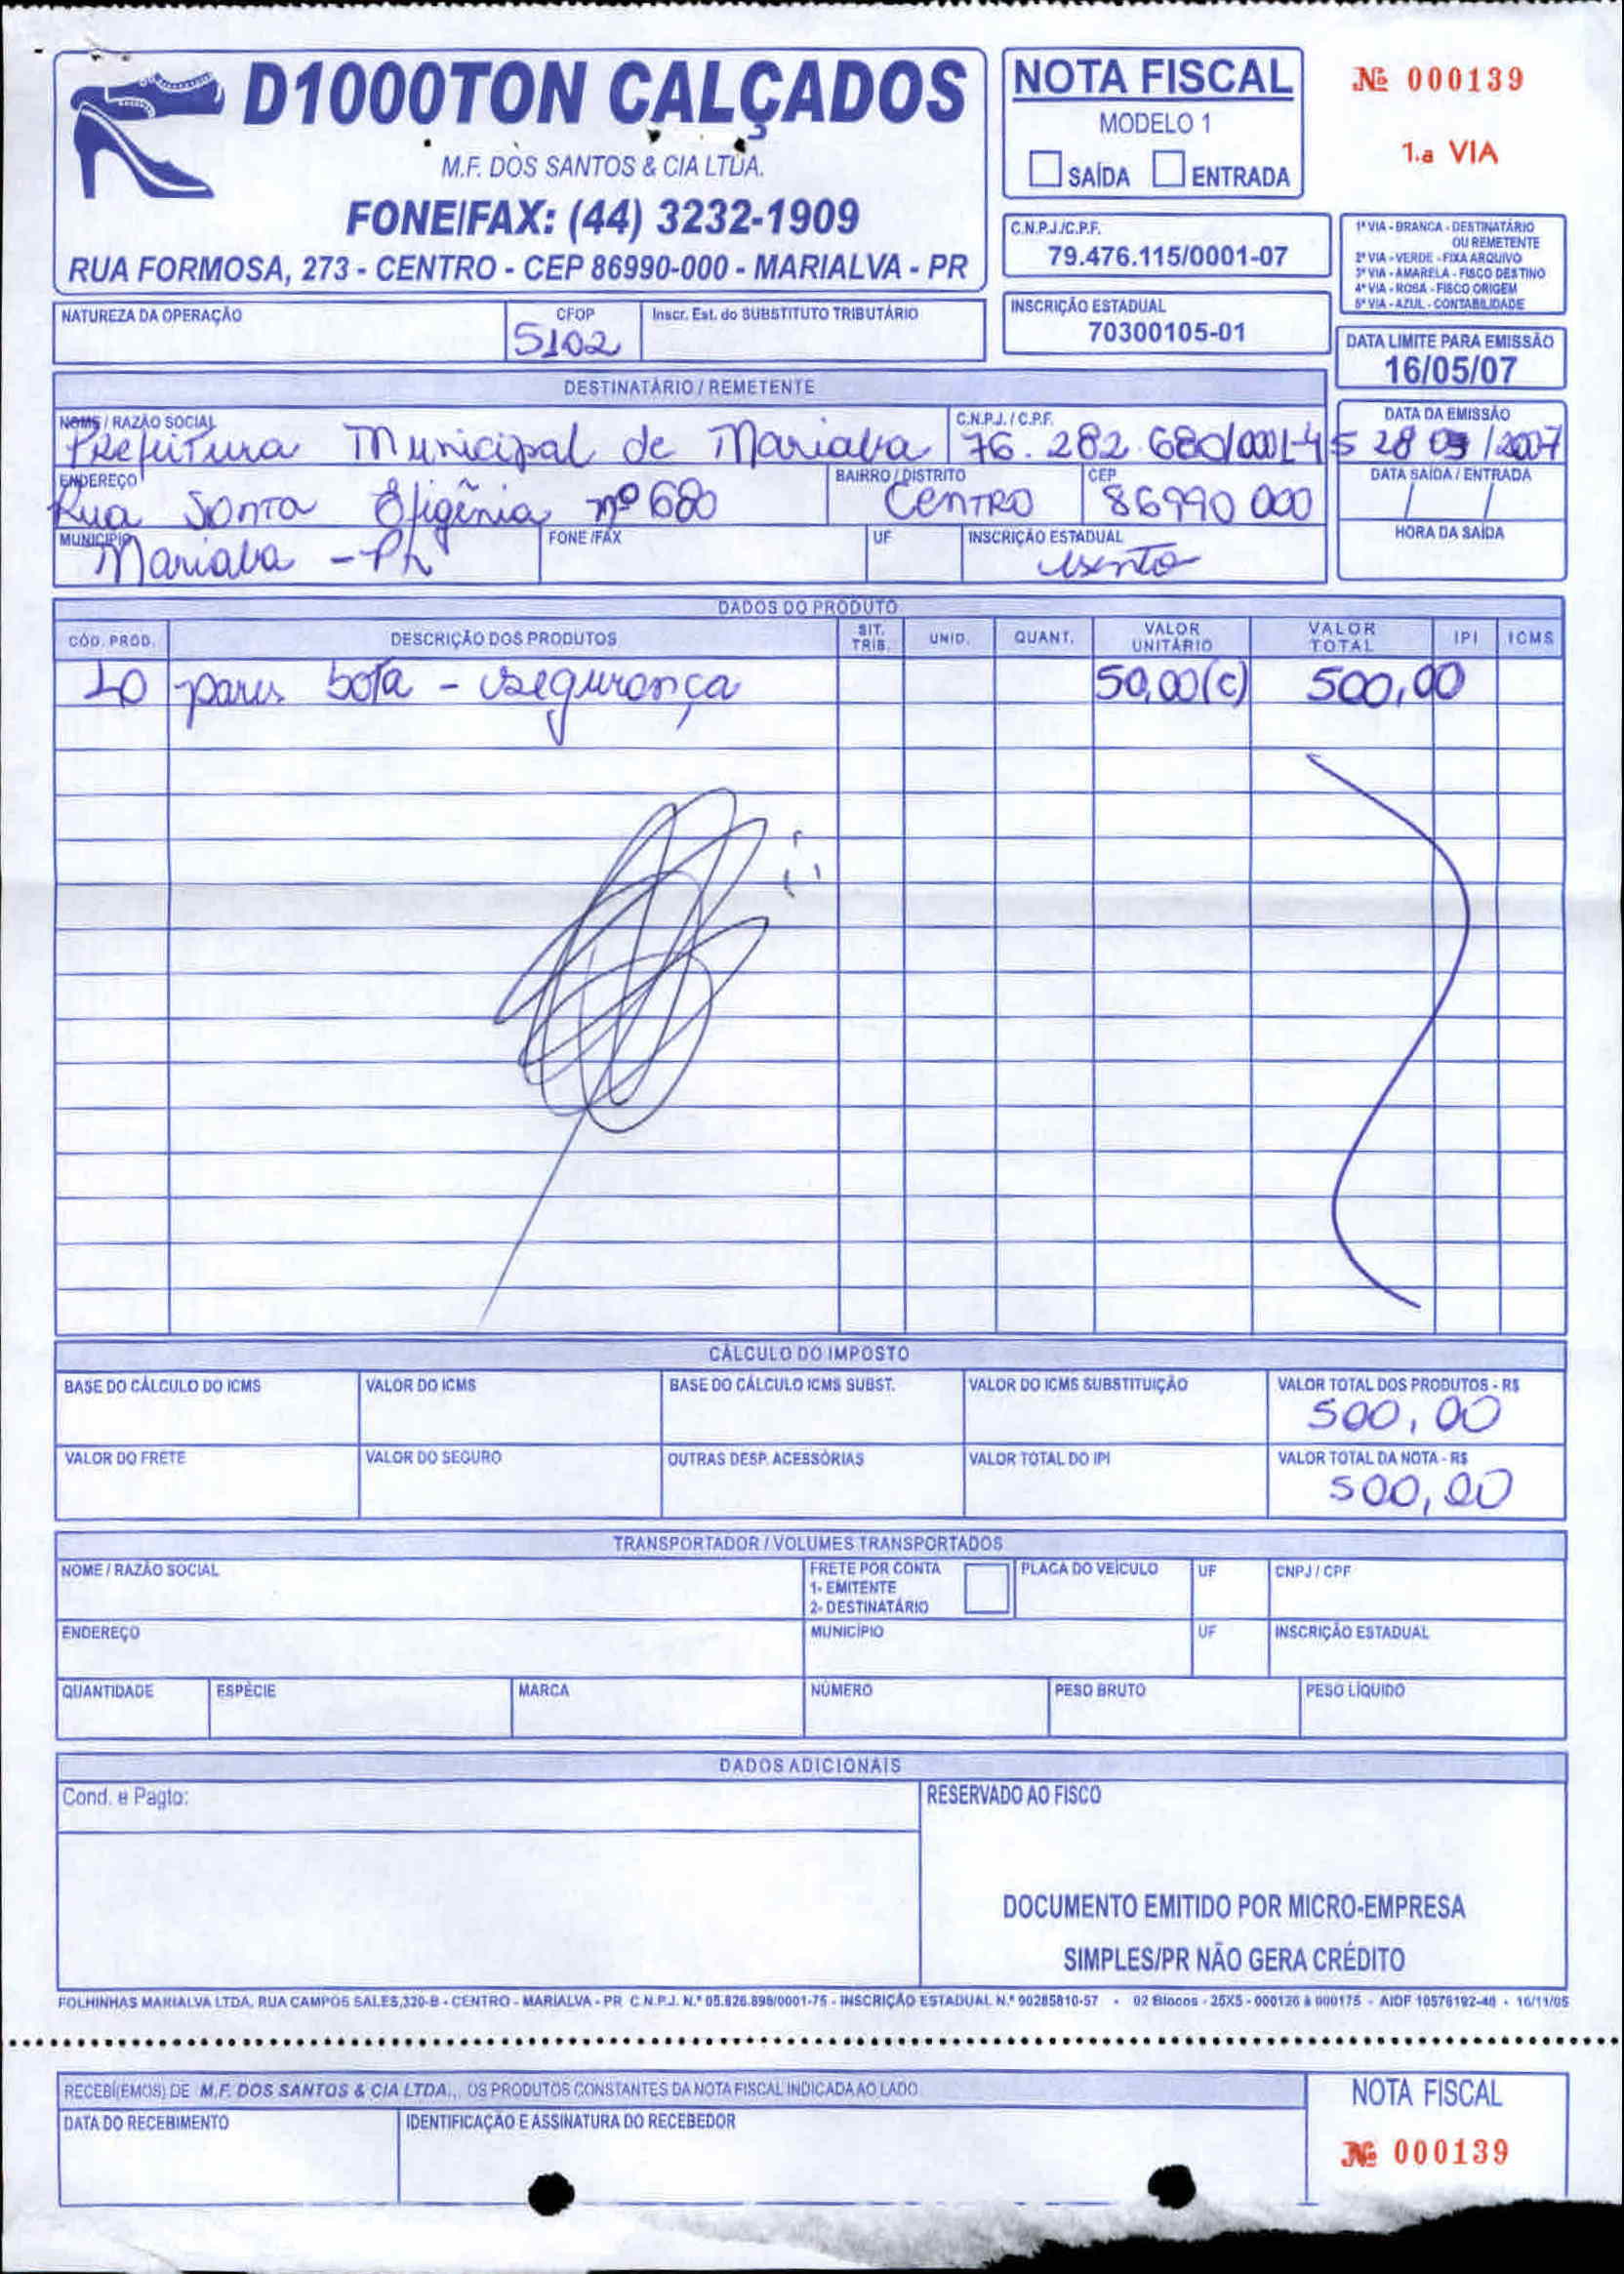 D1000TON CALÇADOS
M.F. DOS SANTOS & CIA LTDA.
FONE/FAX: (44) 3232-1909
RUA FORMOSA, 273 - CENTRO - CEP 86990-000 - MARIALVA - PR
NOTA FISCAL
MODELO 1
SAÍDA ENTRADA
Nº 000139
1.a VIA
C.N.P.J./C.P.F.
79.476.115/0001-07
INSCRIÇÃO ESTADUAL
70300105-01
1ª VIA - BRANCA - DESTINATÁRIO
OU REMETENTE
2ª VIA - VERDE - FIXA ARQUIVO
3ª VIA - AMARELA - FISCO DESTINO
4ª VIA - ROSA - FISCO ORIGEM
5ª VIA - AZUL - CONTABILIDADE
DATA LIMITE PARA EMISSÃO
16/05/07
NATUREZA DA OPERAÇÃO CFOP Inscr. Est. do SUBSTITUTO TRIBUTÁRIO
5102
DESTINATÁRIO / REMETENTE
NOME / RAZÃO SOCIAL C.N.P.J. / C.P.F. DATA DA EMISSÃO
Prefeitura Municipal de Marialva 76.282.680/0001-45 28 /2007
ENDEREÇO BAIRRO / DISTRITO CEP DATA SAÍDA / ENTRADA
Rua Santa Efigênia nº 680 Centro 86990 000 / /
MUNICÍPIO FONE /FAX UF INSCRIÇÃO ESTADUAL HORA DA SAÍDA
Marialva - Pr isento
DADOS DO PRODUTO
CÓD. PROD. DESCRIÇÃO DOS PRODUTOS SIT. TRIB. UNID. QUANT. VALOR UNITÁRIO VALOR TOTAL IPI ICMS
10 pares bota - segurança 50,00(c) 500,00
CÁLCULO DO IMPOSTO
BASE DO CÁLCULO DO ICMS VALOR DO ICMS BASE DO CÁLCULO ICMS SUBST. VALOR DO ICMS SUBSTITUIÇÃO VALOR TOTAL DOS PRODUTOS - R$
500,00
VALOR DO FRETE VALOR DO SEGURO OUTRAS DESP. ACESSÓRIAS VALOR TOTAL DO IPI VALOR TOTAL DA NOTA - R$
500,00
TRANSPORTADOR / VOLUMES TRANSPORTADOS
NOME / RAZÃO SOCIAL FRETE POR CONTA PLACA DO VEÍCULO UF CNPJ / CPF
1- EMITENTE
2- DESTINATÁRIO
ENDEREÇO MUNICÍPIO UF INSCRIÇÃO ESTADUAL
QUANTIDADE ESPÉCIE MARCA NÚMERO PESO BRUTO PESO LÍQUIDO
DADOS ADICIONAIS
Cond. e Pagto: RESERVADO AO FISCO
DOCUMENTO EMITIDO POR MICRO-EMPRESA
SIMPLES/PR NÃO GERA CRÉDITO
FOLHINHAS MARIALVA LTDA. RUA CAMPOS SALES,320-B - CENTRO - MARIALVA - PR C.N.P.J. N.º 05.826.898/0001-75 - INSCRIÇÃO ESTADUAL N.º 90285810-57 - 02 Blocos - 25X5 - 000126 à 000175 - AIDF 10576192-48 - 16/11/05
RECEBI(EMOS) DE M.F. DOS SANTOS & CIA LTDA., OS PRODUTOS CONSTANTES DA NOTA FISCAL INDICADA AO LADO
DATA DO RECEBIMENTO IDENTIFICAÇÃO E ASSINATURA DO RECEBEDOR
NOTA FISCAL
Nº 000139